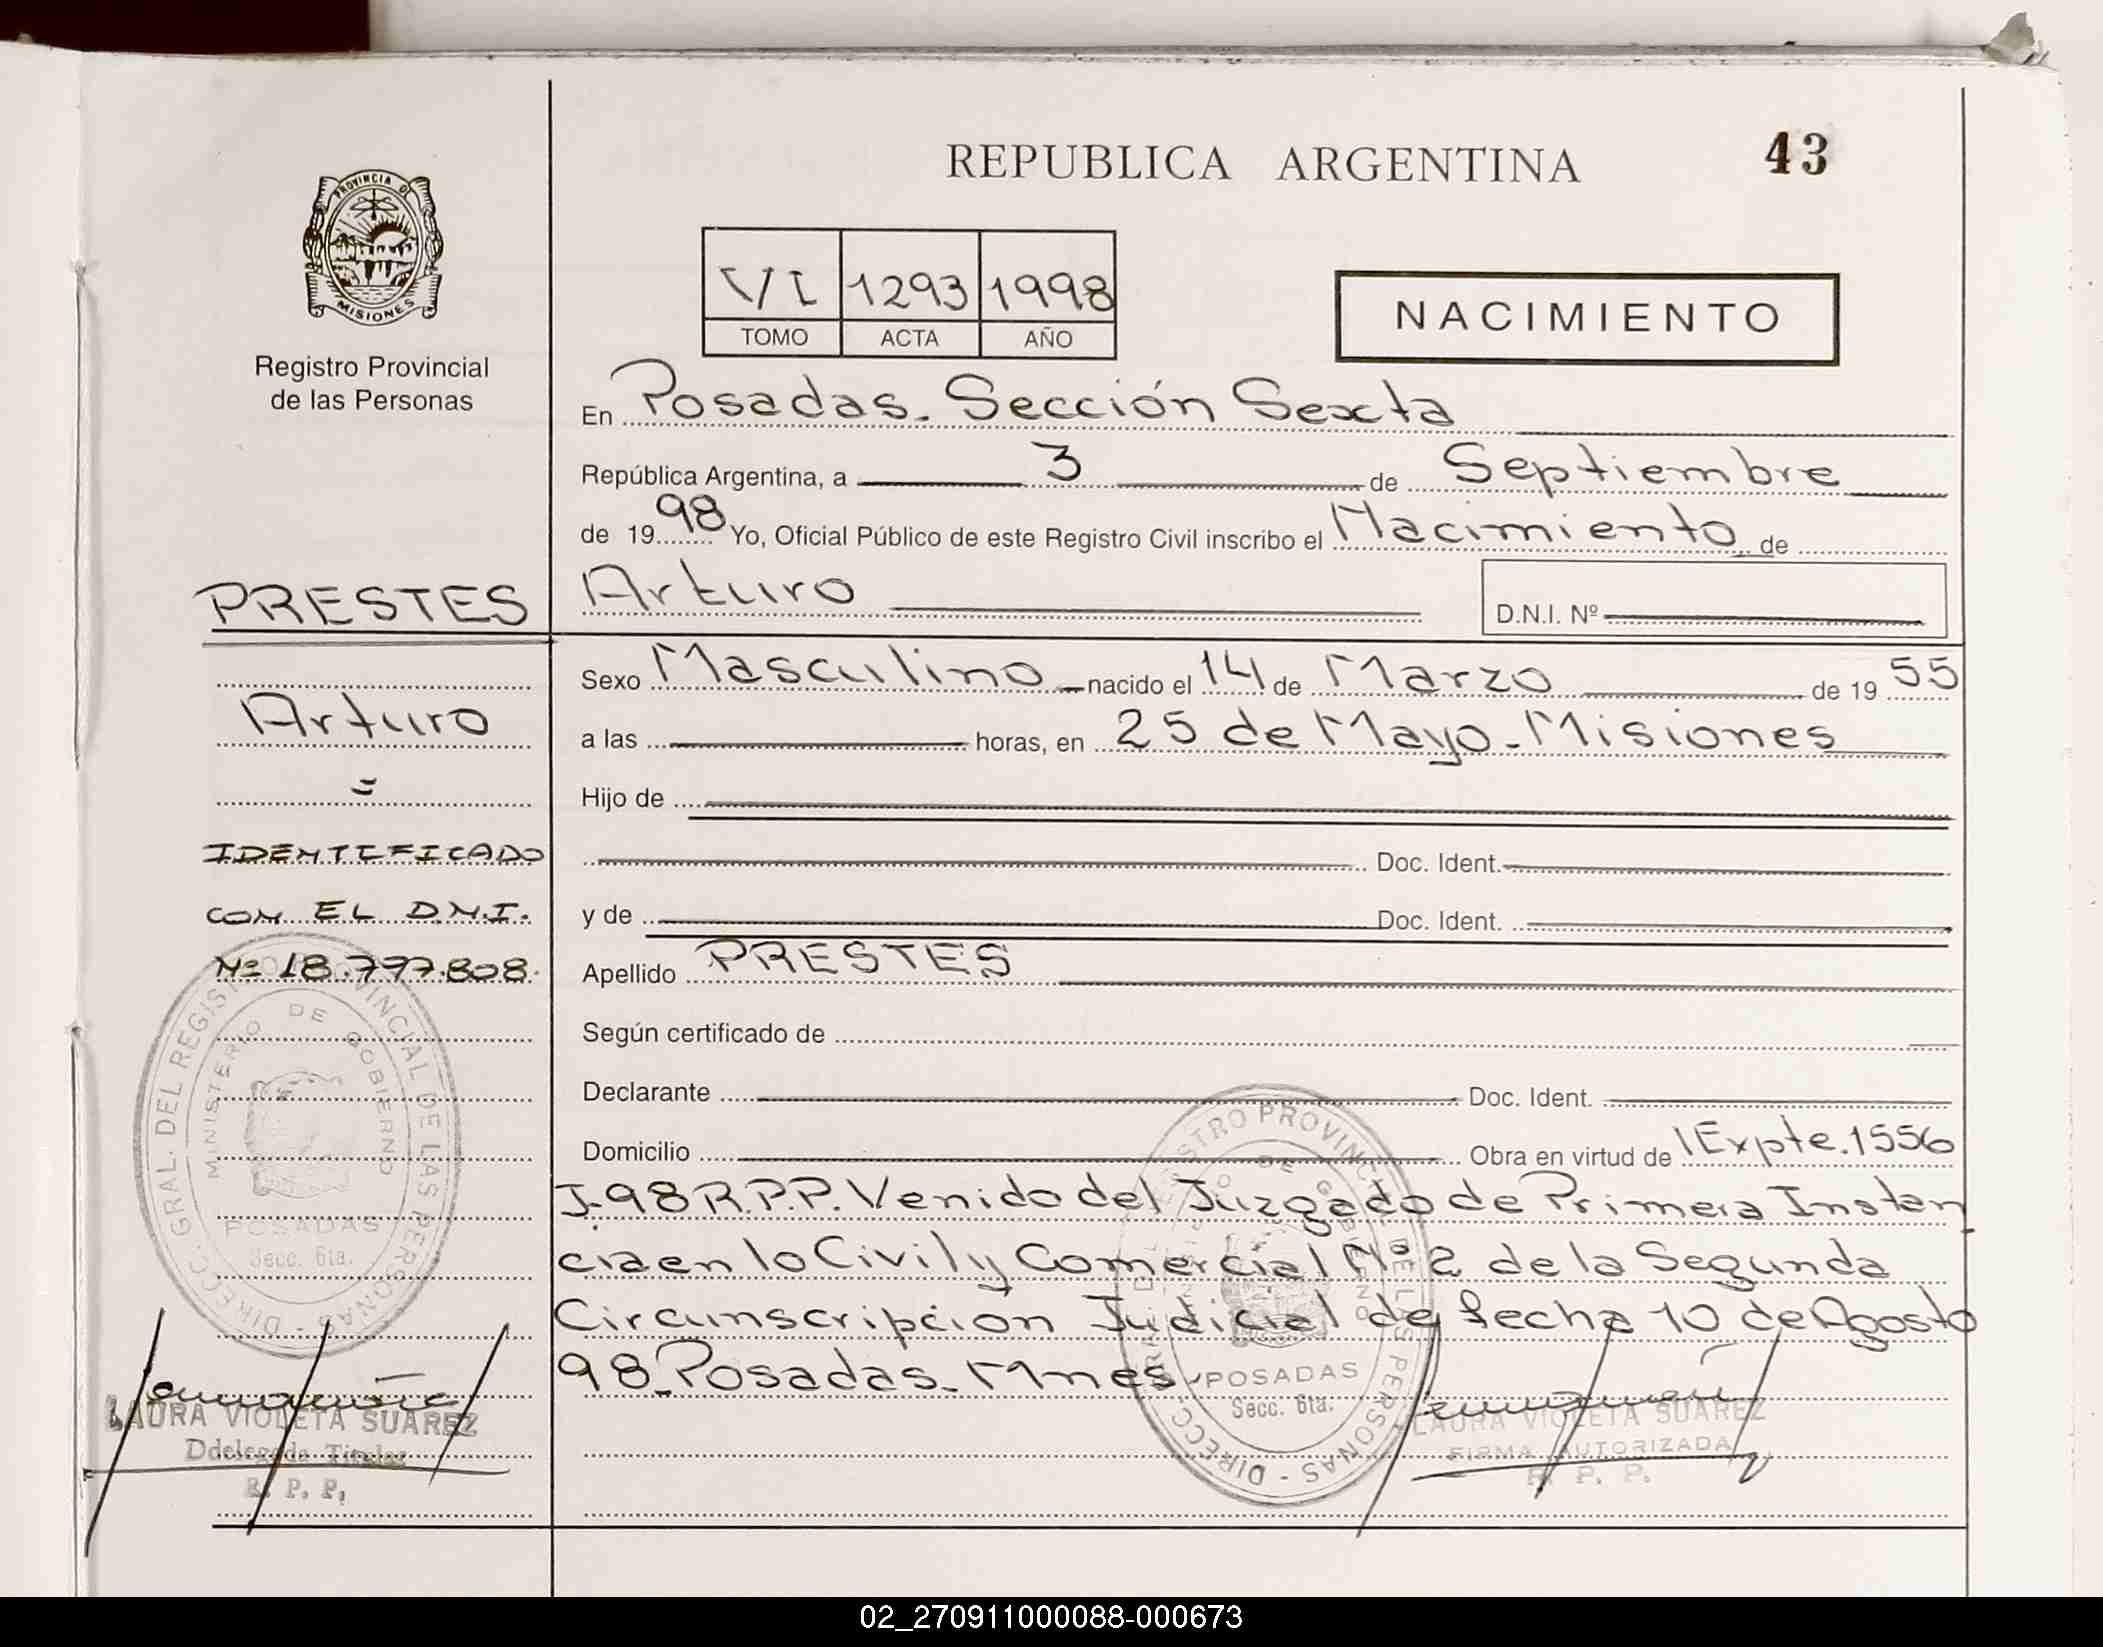 REPUBLICA ARGENTINA
43
PROVINCIA DE
MISIONES
Registro Provincial
de las Personas
VI 1293 1998
TOMO ACTA AÑO
NACIMIENTO
En Posadas. Sección Sexta
República Argentina, a 3 de Septiembre
de 1998 Yo, Oficial Público de este Registro Civil inscribo el Nacimiento de
PRESTES
Arturo
D.N.I. Nº
Sexo Masculino nacido el 14 de Marzo de 1955
Arturo
a las horas, en 25 de Mayo - Misiones
=
Hijo de
IDENTIFICADO
Doc. Ident.
CON EL D.N.I.
y de Doc. Ident.
Nº 18.797.808.
Apellido PRESTES
Según certificado de
Declarante Doc. Ident.
Domicilio Obra en virtud de Expte. 1556
J-98 R.P.P. Venido del Juzgado de Primera Instan
cia en lo Civil y Comercial Nº 2 de la Segunda
Circunscripcion Judicial de fecha 10 de Agosto
98 Posadas - Mnes
DIRECC. GRAL. DEL REGISTRO PROVINCIAL DE LAS PERSONAS
MINISTERIO DE GOBIERNO
POSADAS
Secc. 6ta.
LAURA VIOLETA SUAREZ
Ddelegada Titular
R. P. P.
REGISTRO PROVINCIAL DE LAS PERSONAS - DIRECC.
POSADAS
Secc. 6ta.
LAURA VIOLETA SUAREZ
FIRMA AUTORIZADA
R. P. P.
02_270911000088-000673